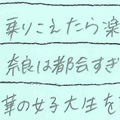 乗りこえたら楽
奈良は都会すぎ
華の女子大生を